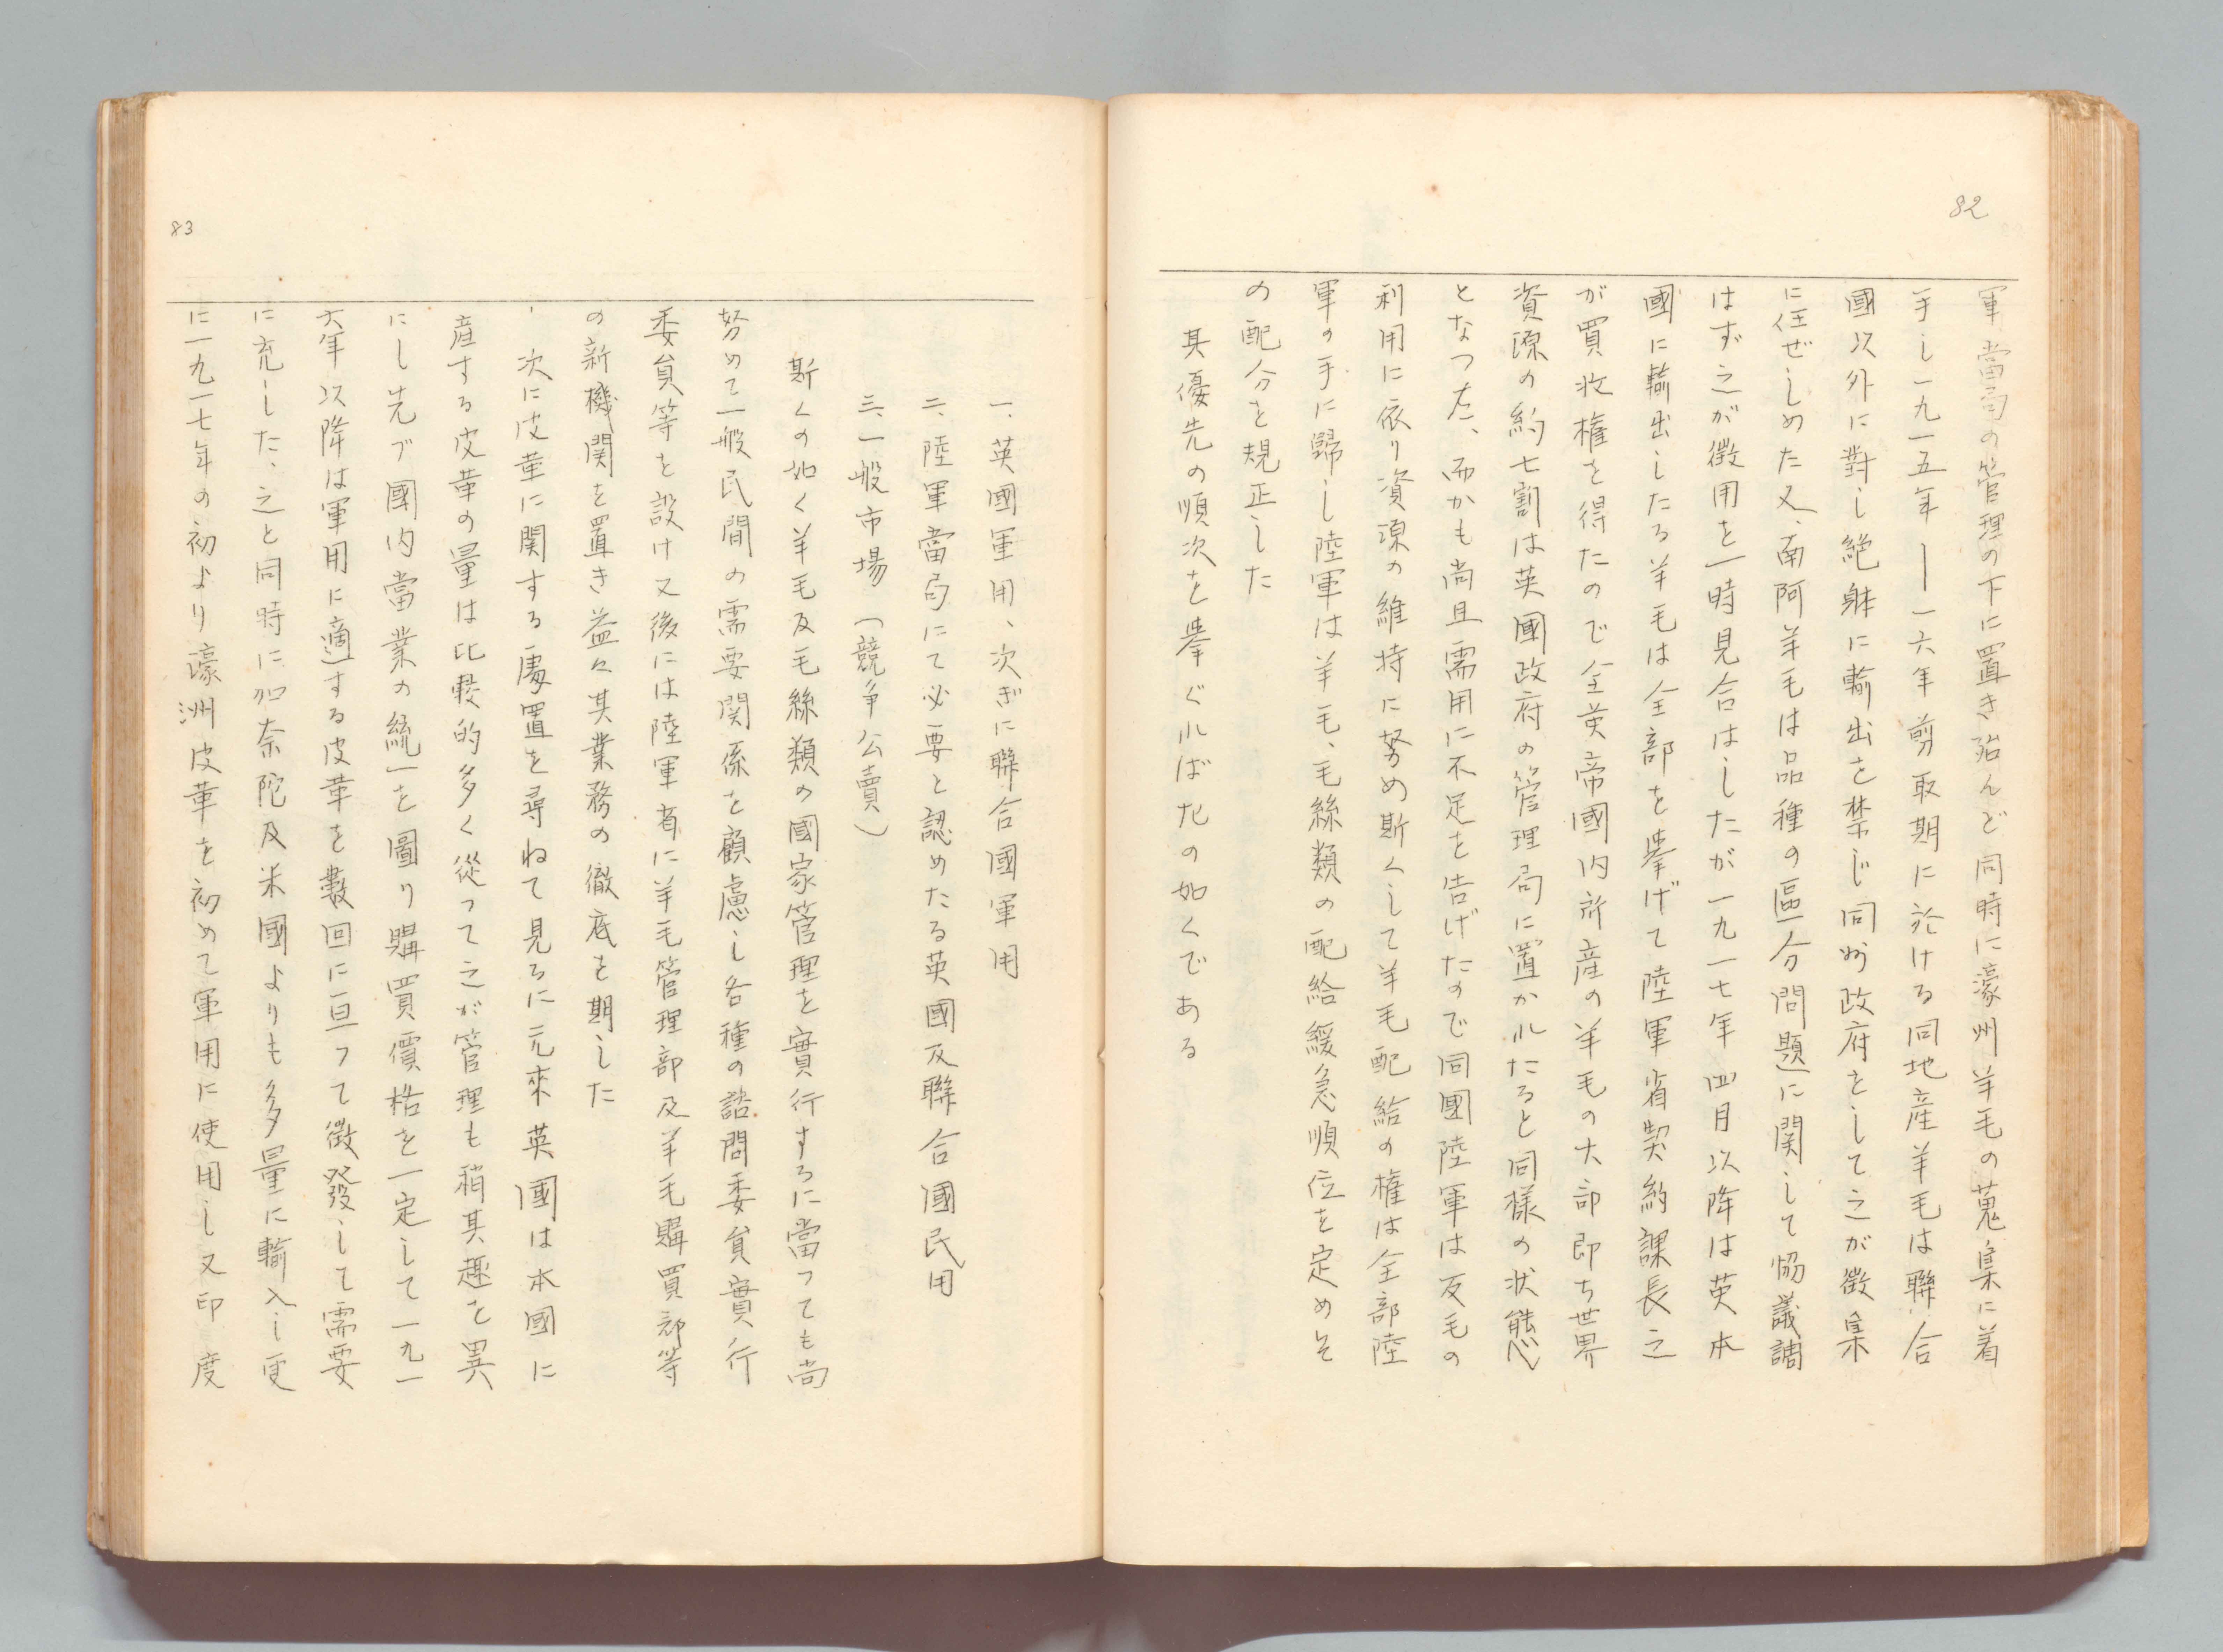 82
軍當局の管理の下に置き殆んど同時に濠州羊毛の蒐集に着
手し一九一五年―一六年剪取期に於ける同地産羊毛は聯合
國以外に對し絶躰に輸出を禁じ同州政府をして之が徴集
に任ぜしめた又、南阿羊毛は品種の區分問題に関して協議調
はず之が徴用を一時見合はしたが一九一七年四月以降は英本
國に輸出したる羊毛は全部を挙げて陸軍省契約課長之
が買收権を得たので全英帝國内所産の羊毛の大部即ち世界
資源の約七割は英國政府の管理局に置かれたると同様の状態
となつた、而かも尚且需用に不足を告げたので同國陸軍は反毛の
利用に依り資源の維持に努め斯くして羊毛配給の権は全部陸
軍の手に歸し陸軍は羊毛、毛絲類の配給緩急順位を定めそ
の配分を規正した
其優先の順次を挙ぐれば左の如くである
83
一、英國軍用、次ぎに聯合國軍用
二、陸軍當局にて必要と認めたる英國及聯合國民用
三、一般市場（競争公賣）
斯くの如く羊毛及毛絲類の國家管理を實行するに當つても尚
努めて一般民間の需要関係を顧慮し各種の諮問委員實行
委員等を設け又後には陸軍省に羊毛管理部及羊毛購買部等
の新機関を置き益々其業務の徹底を期した
、次に皮革に関する處置を尋ねて見るに元來英國は本國に
産する皮革の量は比較的多く從つて之が管理も稍其趣を異
にし先づ國内當業の統一を圖り購買價格を一定して一九一
六年以降は軍用に適する皮革を數回に亘つて徴發して需要
に充した、之と同時に加奈陀及米國よりも多量に輸入し更
に一九一七年の初より濠洲皮革を初めて軍用に使用し又印度